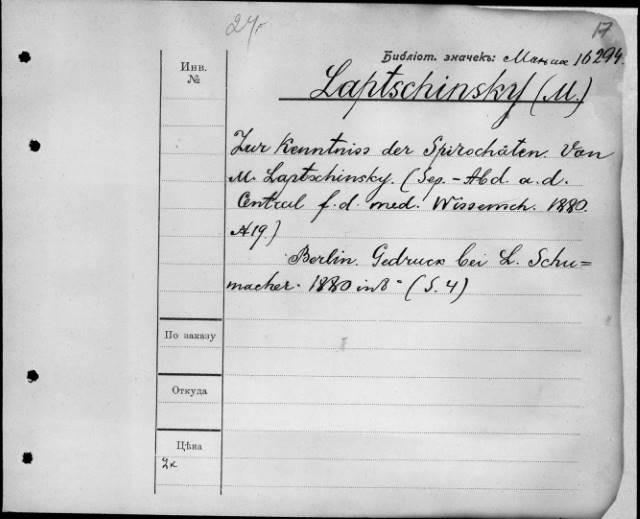 24
17
Библіот. значекъ: 16294.
Инв.
№
Laptschinsky (M.)
Zur Kenntniss der Spirochäten. Von
M. Laptschinsky. (Sep.-Abd. a. d.
Central f. d. med. Wissensch. 1880.
№19.)
Berlin. Gedruck bei L. Schu=
macher. 1880 in 8° (S. 4)
По заказу
Откуда
Цѣна